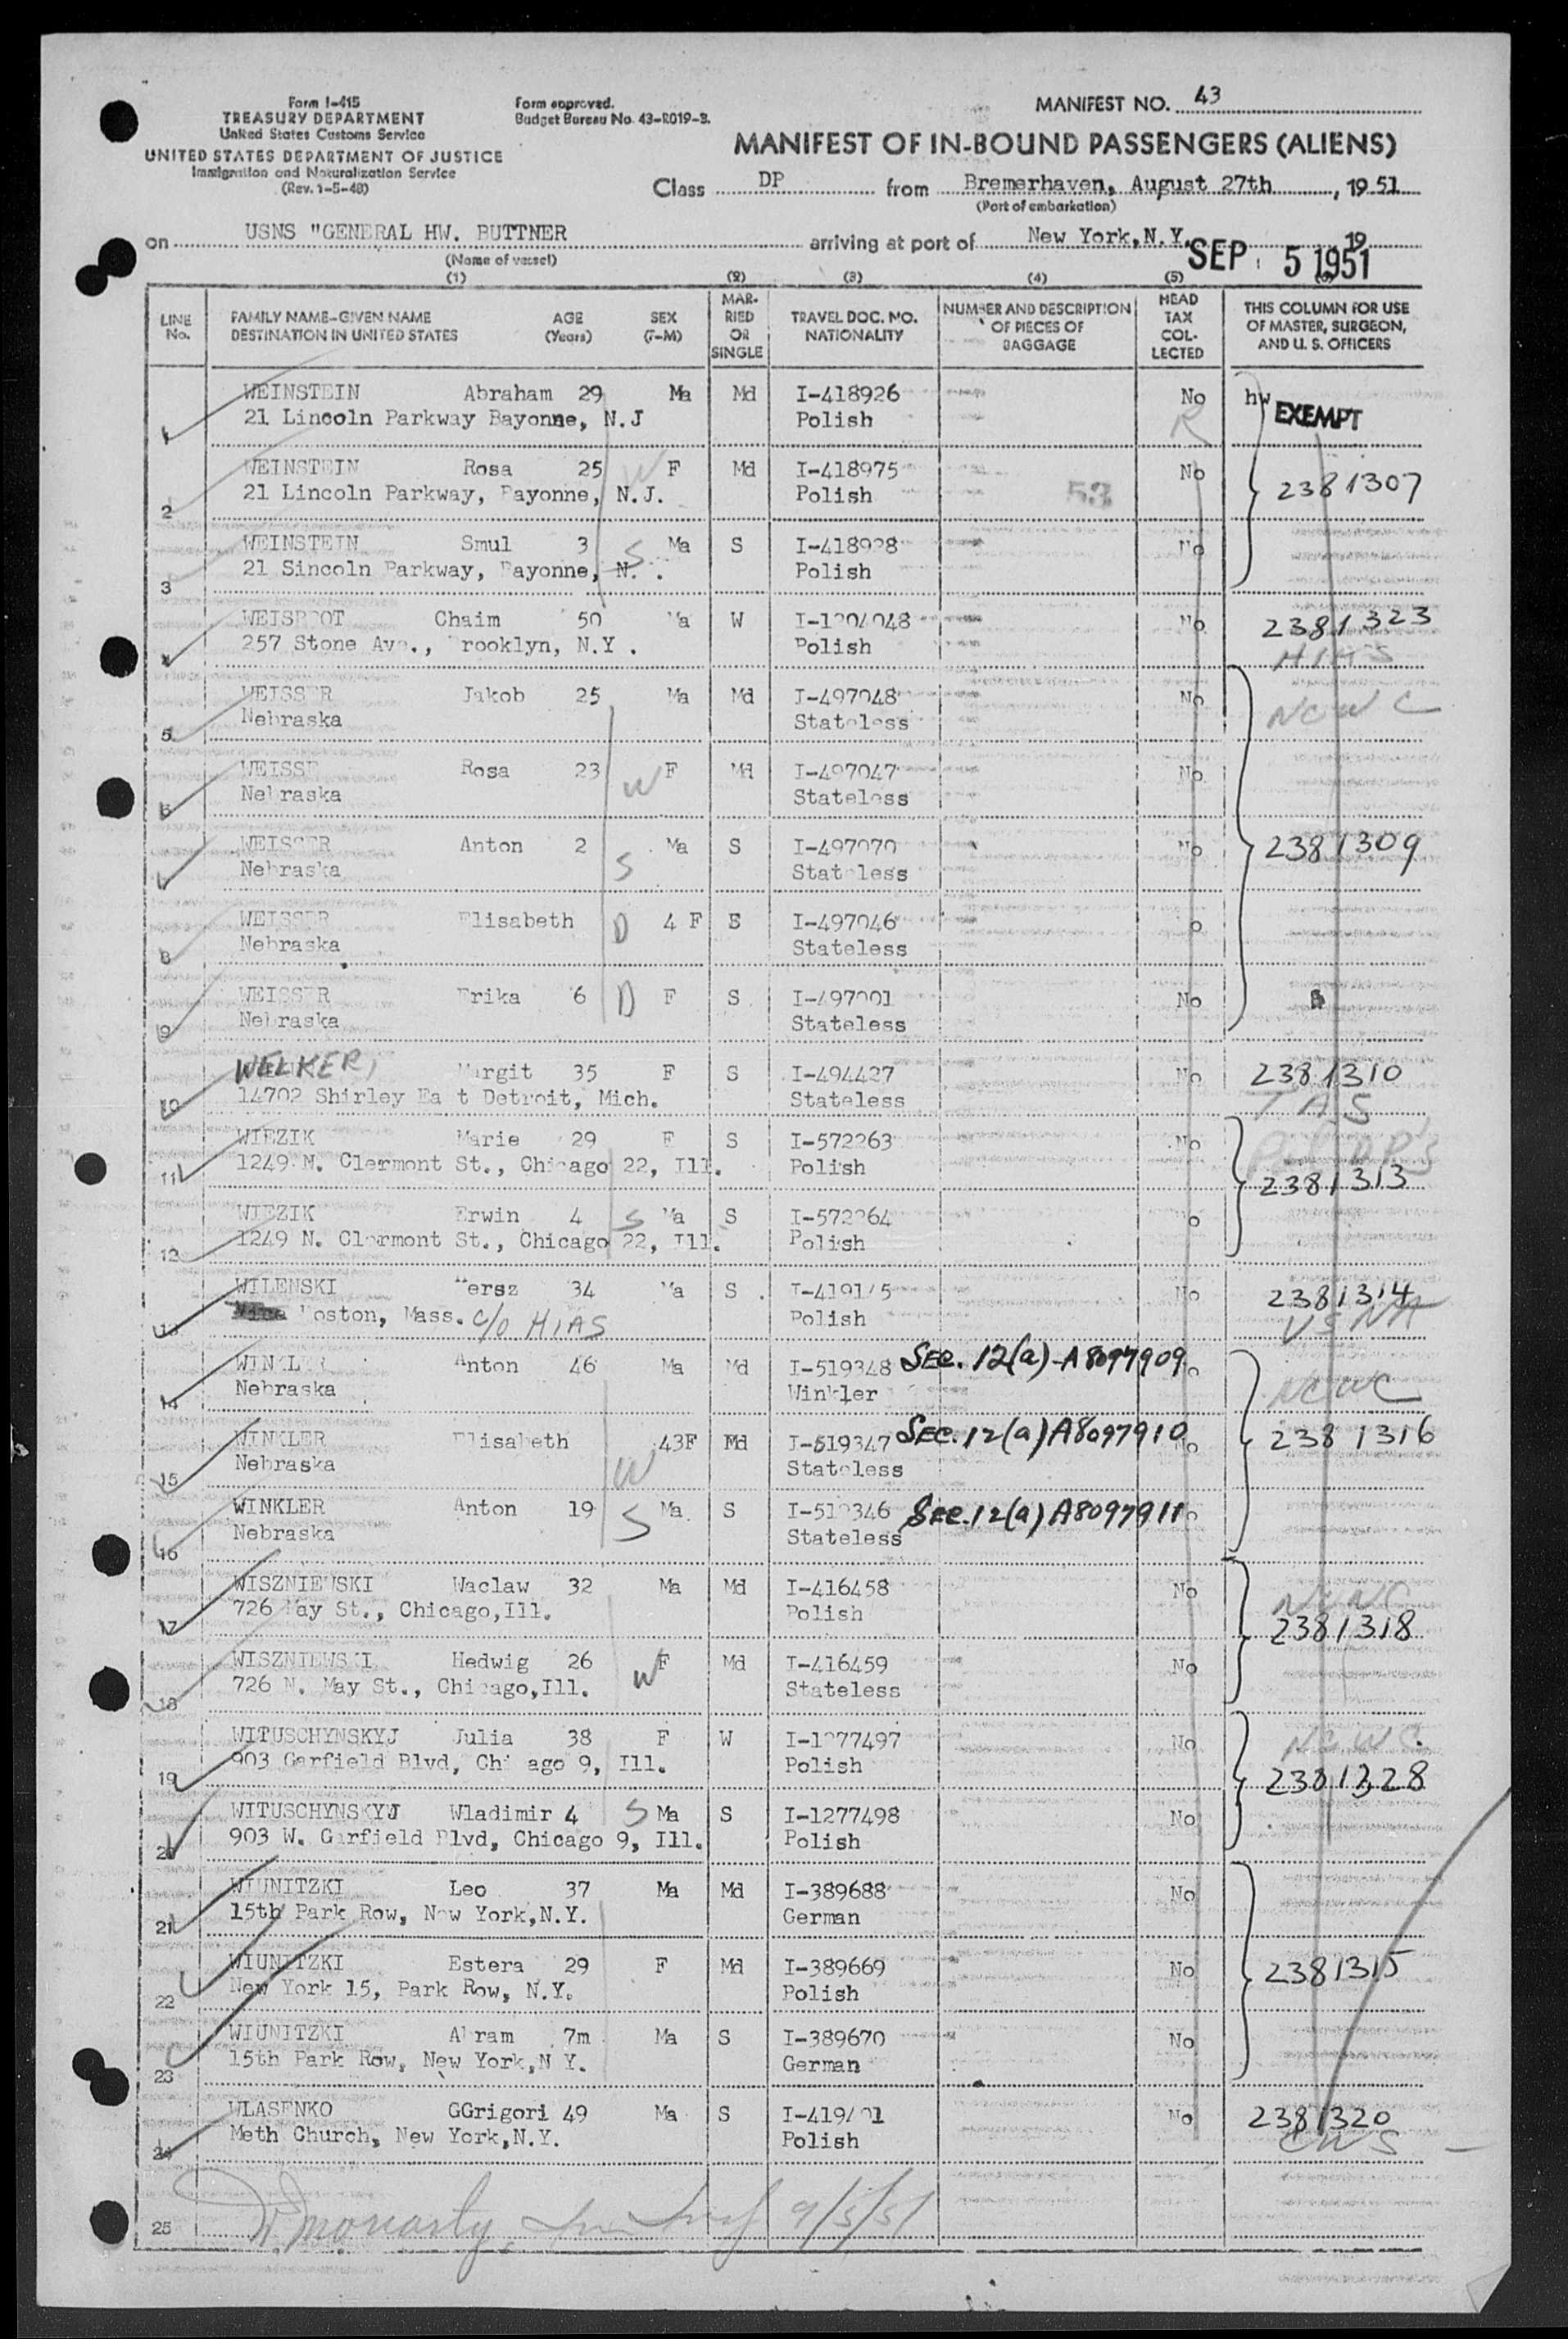 Form I-415
TREASURY DEPARTMENT
United States Customs Service
UNITED STATES DEPARTMENT OF JUSTICE
Immigration and Naturalization Service
(Rev. 1-5-48)
Form approved.
Budget Bureau No. 43-R019-3.
MANIFEST NO. 43
MANIFEST OF IN-BOUND PASSENGERS (ALIENS)
Class DP from Bremerhaven, August 27th, 1951
(Port of embarkation)
on USNS "GENERAL HW. BUTTNER arriving at port of New York,N.Y. 19
(Name of vessel)
SEP 5 1951
(1) (2) (3) (4) (5) (6)
LINE No. FAMILY NAME-GIVEN NAME DESTINATION IN UNITED STATES AGE (Years) SEX (F-M) MARRIED OR SINGLE TRAVEL DOC. NO. NATIONALITY NUMBER AND DESCRIPTION OF PIECES OF BAGGAGE HEAD TAX COLLECTED THIS COLUMN FOR USE OF MASTER, SURGEON, AND U. S. OFFICERS
1 WEINSTEIN Abraham 29 Ma Md I-418926 No hw EXEMPT
21 Lincoln Parkway Bayonne, N.J Polish R
2 WEINSTEIN Rosa 25 W F Md I-418975 No 2381307
21 Lincoln Parkway, Bayonne, N.J. Polish 53
3 WEINSTEIN Smul 3 S Ma S I-418928 No
21 Sincoln Parkway, Bayonne, N. . Polish
4 WEISBROT Chaim 50 Ma W I-1204048 No 2381323
257 Stone Ave., Brooklyn, N.Y. Polish HIAS
5 WEISSER Jakob 25 Ma Md I-497048 No NCWC
Nebraska Stateless
6 WEISSE Rosa 23 W F Md I-497047 No
Nebraska Stateless
7 WEISSER Anton 2 S Ma S I-497070 No 2381309
Nebraska Stateless
8 WEISSER Elisabeth D 4 F S I-497046 No
Nebraska Stateless
9 WEISSER Erika 6 D F S I-497001 No
Nebraska Stateless
10 WELKER, Margit 35 F S I-494427 No 2381310
14702 Shirley East Detroit, Mich. Stateless
11 WIEZIK Marie 29 F S I-572263 No
1249 N. Clermont St., Chicago 22, Ill. Polish 2381313
12 WIEZIK Erwin 4 S Ma S I-572264 No
1249 N. Clermont St., Chicago 22, Ill. Polish
13 WILENSKI Hersz 34 Ma S I-419145 No 2381314
Boston, Mass. c/o HIAS Polish USNA
14 WINKLER Anton 46 Ma Md I-519348 Sec. 12(a)-A8097909 No NCWC
Nebraska Winkler
15 WINKLER Elisabeth 43F Md I-519347 Sec. 12(a) A8097910 No 2381316
Nebraska W Stateless
16 WINKLER Anton 19 S Ma S I-519346 Sec. 12(a) A8097911 No
Nebraska Stateless
17 WISZNIEWSKI Waclaw 32 Ma Md I-416458 No NCWC
726 May St., Chicago,Ill. Polish 2381318
18 WISZNIEWSKI Hedwig 26 W F Md I-416459 No
726 N. May St., Chicago,Ill. Stateless
19 WITUSCHYNSKYJ Julia 38 F W I-1277497 No NCWC
903 Garfield Blvd, Chicago 9, Ill. Polish 2381328
20 WITUSCHYNSKYJ Wladimir 4 S Ma S I-1277498 No
903 W. Garfield Blvd, Chicago 9, Ill. Polish
21 WIUNITZKI Leo 37 Ma Md I-389688 No
15th Park Row, New York,N.Y. German
22 WIUNITZKI Estera 29 F Md I-389669 No 2381315
New York 15, Park Row, N.Y. Polish
23 WIUNITZKI Abram 7m Ma S I-389670 No
15th Park Row, New York,N Y. German
24 WLASENKO GGrigori 49 Ma S No 2381320
Meth Church, New York,N.Y. Polish CWS
25 9/5/51